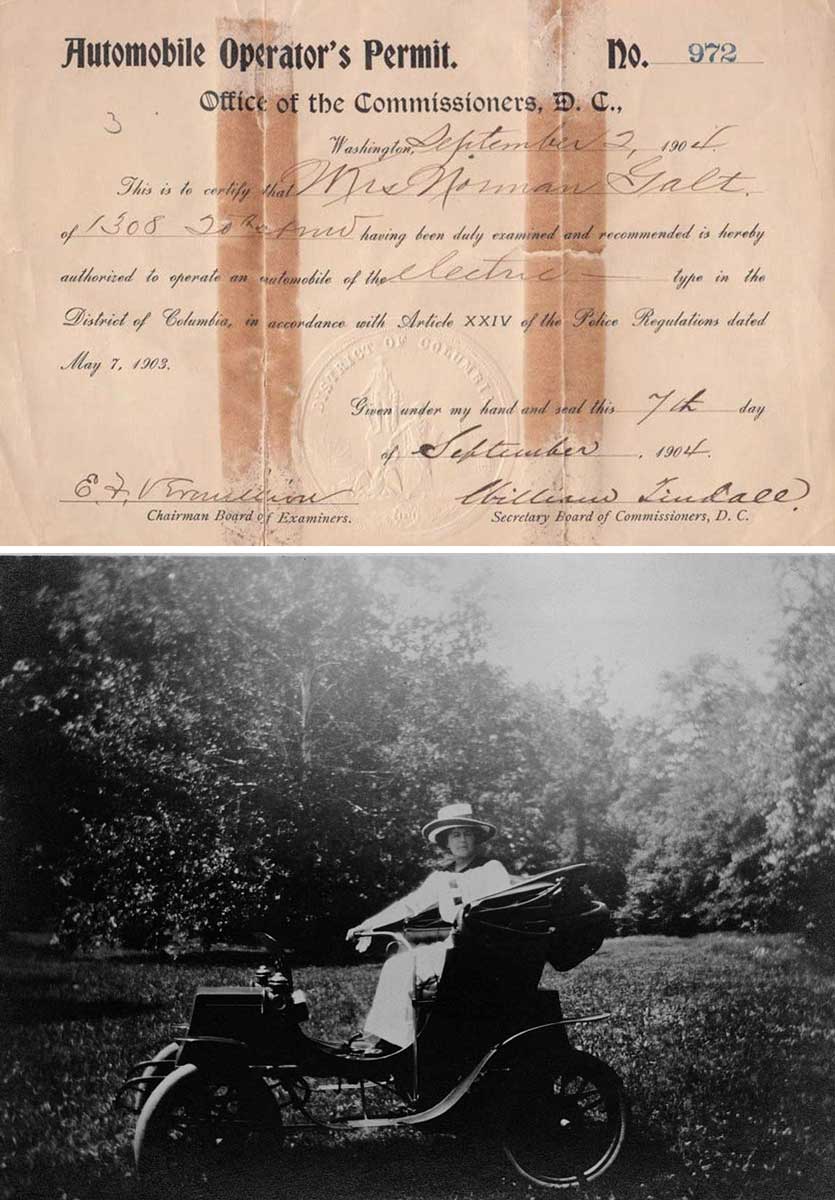 Automobile Operator's Permit. No. 972
Office of the Commissioners, D. C.,
3
Washington, September 2, 1904
This is to certify that Mrs Norman Galt.
of 1308 20th St NW having been duly examined and recommended is hereby
authorized to operate an automobile of the electric type in the
District of Columbia, in accordance with Article XXIV of the Police Regulations dated
May 7, 1903.
DISTRICT OF COLUMBIA
Given under my hand and seal this 7th day
of September, 1904.
E. F. Vermillion William Tindall.
Chairman Board of Examiners. Secretary Board of Commissioners, D. C.